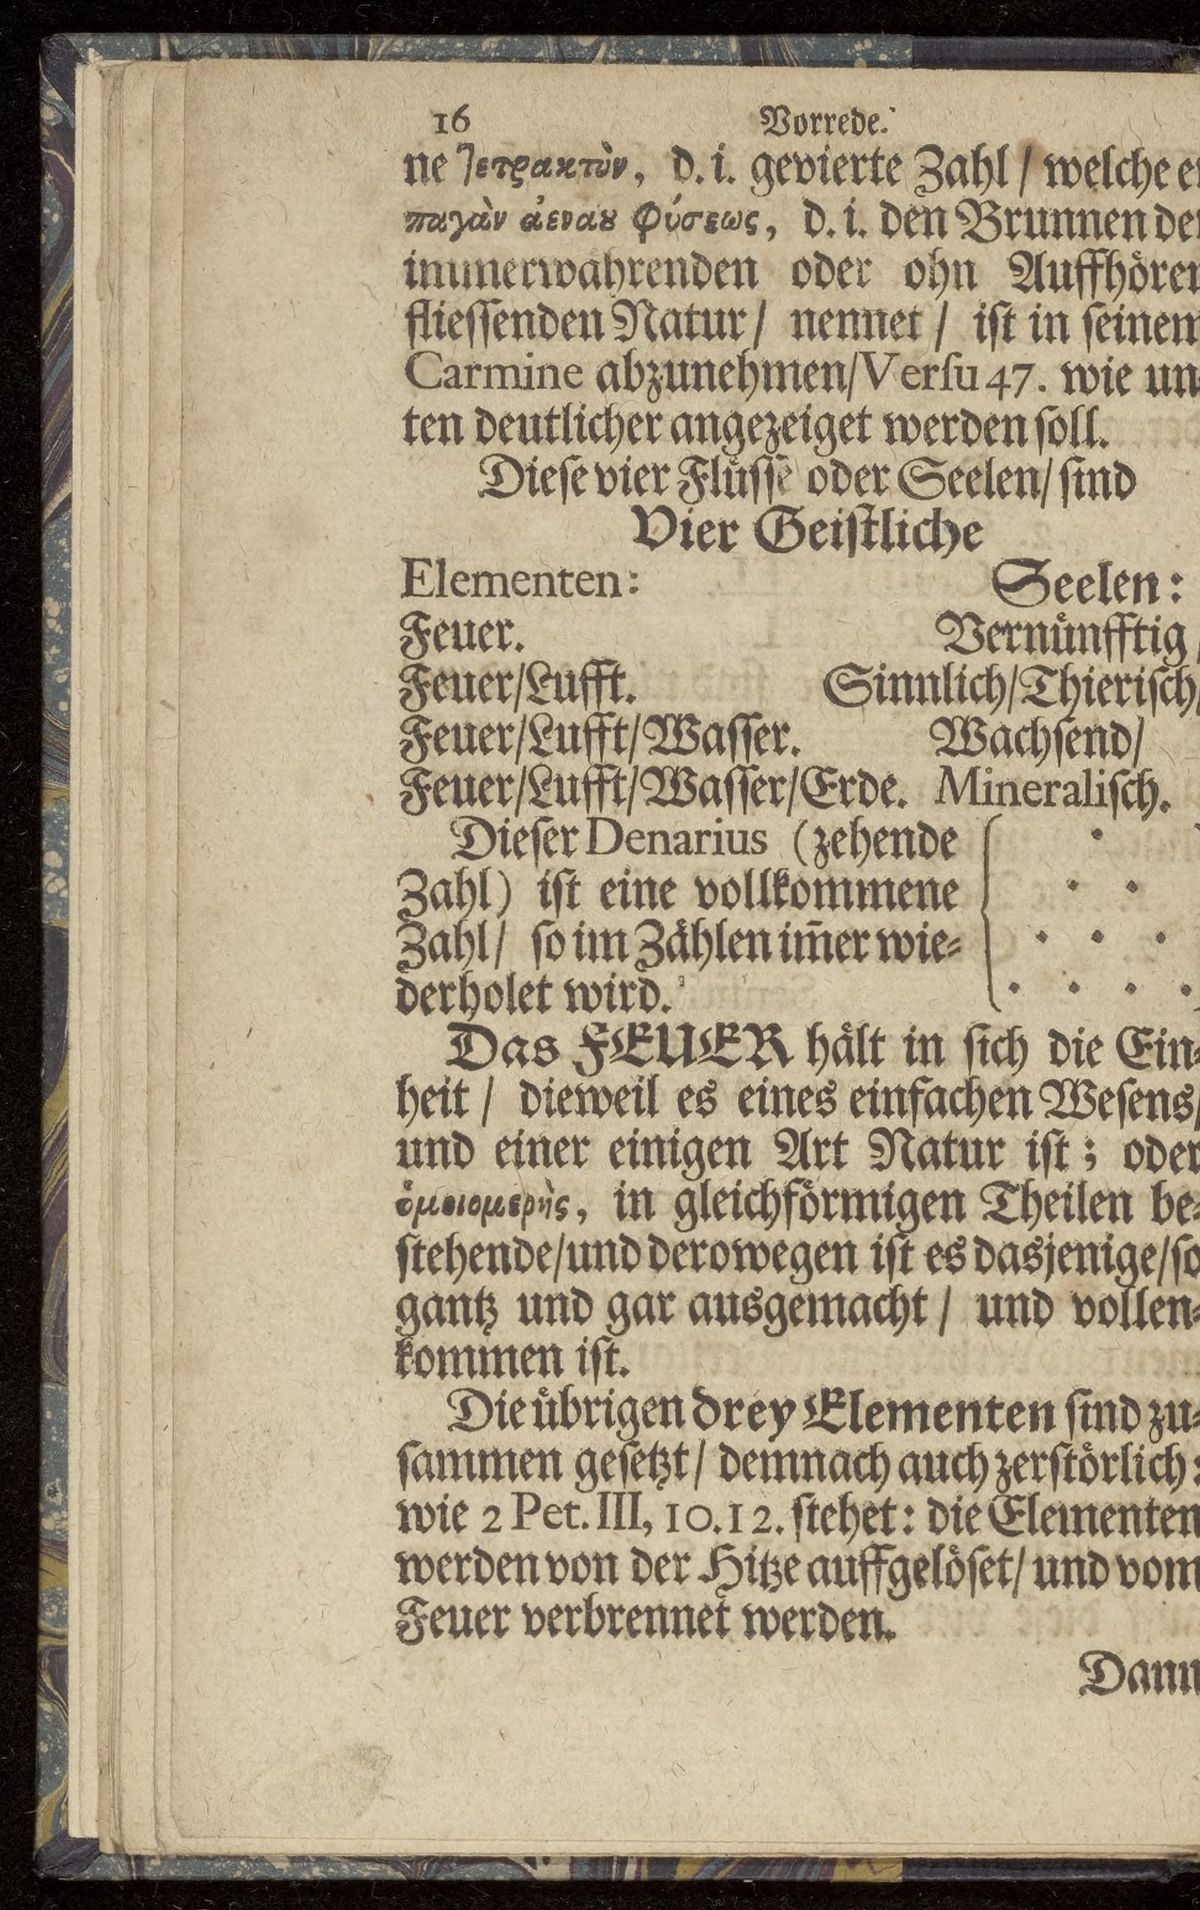 16 Vorrede.
ne Τετρακτὺν, d. i. gevierte Zahl / welche er
παγὰν ἀεναȣ φύσεως, d. i. den Brunnen der
immerwährenden oder ohn Auffhören
fliessenden Natur / nennet / iſt in ſeinem
Carmine abzunehmen/Verſu 47. wie un-
ten deutlicher angezeiget werden ſoll.
Dieſe vier Flüſſe oder Seelen/ ſind
Vier Geiſtliche
Elementen: Seelen:
Feuer. Vernünfftig /
Feuer/Lufft. Sinnlich/Thieriſch/
Feuer/Lufft/Waſſer. Wachſend/
Feuer/Lufft/Waſſer/Erde. Mineraliſch.
Dieſer Denarius (zehende
Zahl) iſt eine vollkommene
Zahl/ ſo im Zählen im̃er wie⸗
derholet wird.
Das FEUER hält in ſich die Ein⸗
heit / dieweil es eines einfachen Weſens/
und einer einigen Art Natur iſt; oder
ὁμοιομερὴς, in gleichförmigen Theilen be⸗
ſtehende/und derowegen iſt es dasjenige/ſo
gantz und gar ausgemacht / und vollen⸗
kommen iſt.
Die übrigen drey Elementen ſind zu⸗
ſammen geſetzt/ demnach auch zerſtörlich:
wie 2 Pet. III, 10. 12. ſtehet: die Elementen
werden von der Hitze auffgelöſet/ und vom
Feuer verbrennet werden.
Dann